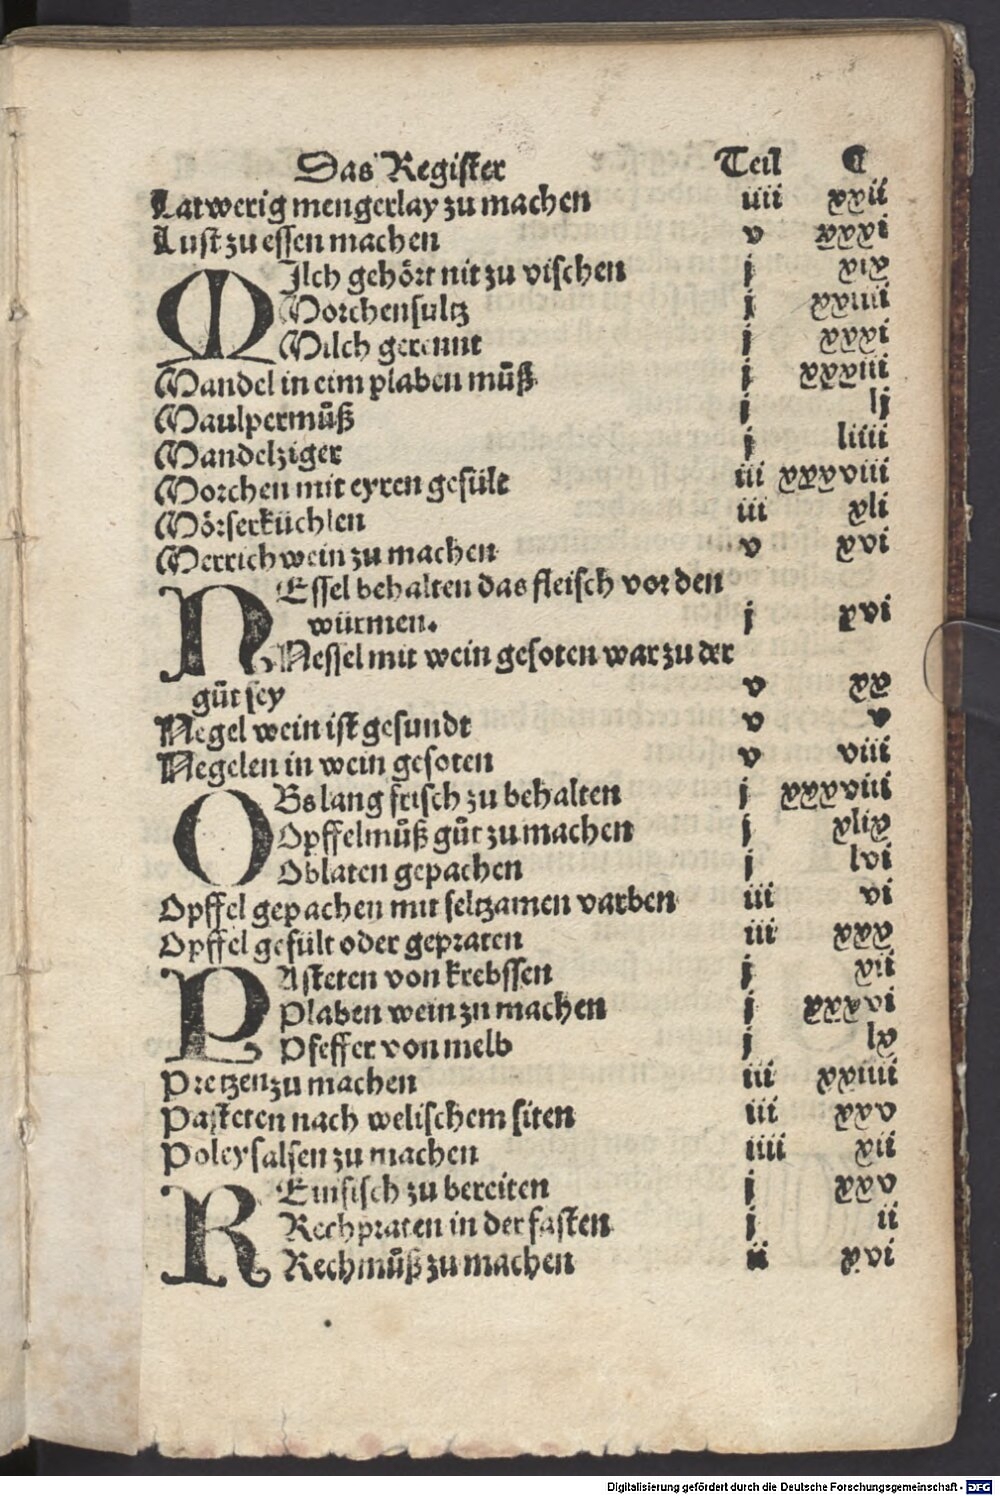 Das Register Teil C
Latwerig mengerlay zu machen iiii xxxii
Lust zu essen machen v xxxi
MIlch gehört nit zu vischen j xix
Morchensultz j xxiiii
Milch gerennt j xxxi
Mandel in eim plaben můß j xxxiii
Maulpermůß j lj
Mandelziger j liiii
Morchen mit eyren gefült iii xxxviii
Mörserküchlen iii xli
Merrichwein zu machen v xvi
NEssel behalten das fleisch vor den
würmen. j xvi
Nessel mit wein gesoten war zu der
gůt sey v xx
Negel wein ist gesundt v v
Negelen in wein gesoten v viii
OBs lang frisch zu behalten j xxxviii
Opffelmůß gůt zu machen j xlix
Oblaten gepachen j lvi
Opffel gepachen mit seltzamen varben iii vi
Opffel gefült oder gepraten iii xxx
PAsteten von krebssen j xii
Plaben wein zu machen j xxxvi
Pfeffer von melb j lx
Pretzen zu machen iii xxiiii
Pasteten nach welischem siten iii xxv
Poleysalsen zu machen iiii xii
REinfisch zu bereiten j xxv
Rechpraten in der fasten j ii
Rechmůß zu machen ii xvi
Digitalisierung gefördert durch die Deutsche Forschungsgemeinschaft - DFG